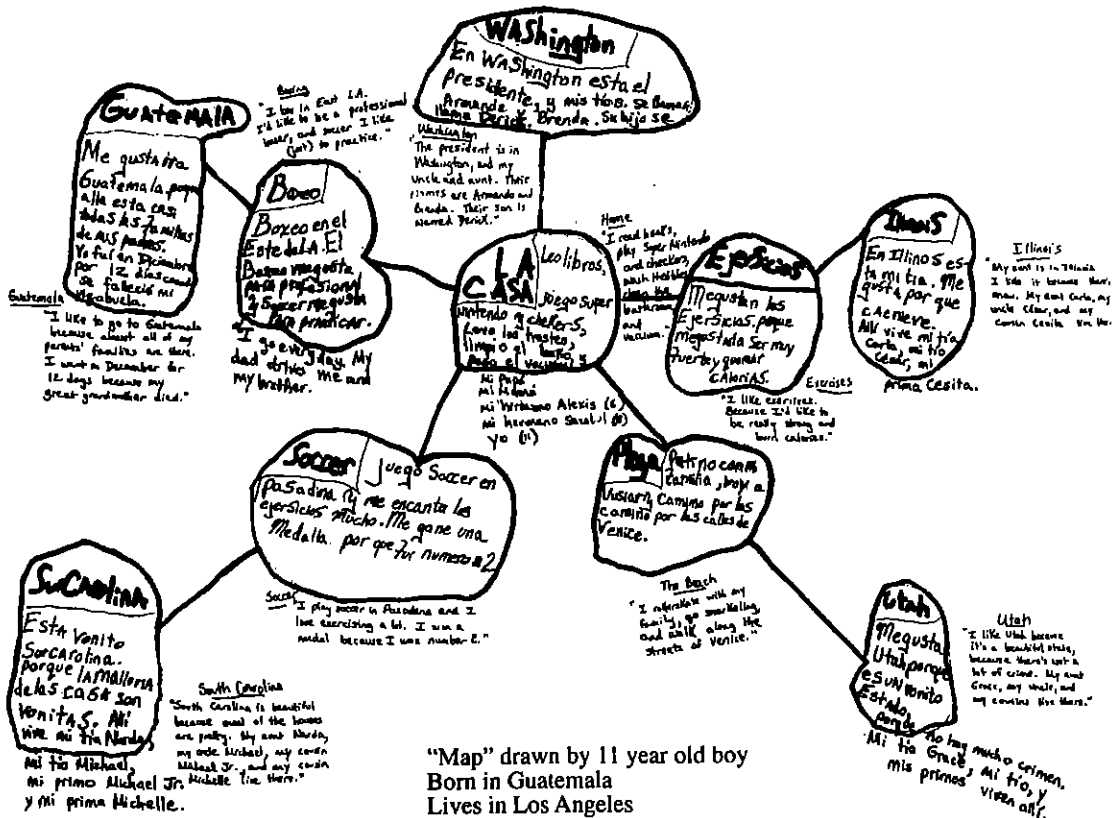 WAShington
En WAShington esta el
presidente, y mis tíos. Se llaman
Armando y Brenda. Su hijo se
llama Derick.
Washington
The president is in
Washington, and my
uncle and aunt. Their
names are Armando and
Brenda. Their son is
named Derick."
GUAtemALA
Me gusta ir a
Guatemala porque
alla esta casi
todas las familias
de mis padres.
Yo fui en Diciembre
por 12 dias
se falleció mi
Guatemala
"I like to go to Guatemala
because almost all of my
parents' families are there.
I went in December for
12 days because my
great grandmother died."
Boxing
"I box in East L.A.
I'd like to be a professional
boxer, and soccer I like
(just) to practice."
Boxeo
Boxeo en el
Este de LA. El
Boxeo me gusta
para profesional
y Soccer me gusta
para practicar.
"I go everyday. My
dad drives me and
my brother.
LA CASA
Leo libros,
Juego Super
nintendo y chekers,
Lavo los trastes,
limpio el baño, y
paso el
Mi Papá
Mi Mamá
Mi hermano Alexis (6)
Mi hermano (8)
yo (11)
Home
"I read books,
play Super Nintendo
and checkers,
wash the dishes,
clean the
bathroom
and
vacuum."
EjerSicios
Me gustan los
Ejersicios. porque
me gustada Ser muy
fuerte y quemar
CAlorias.
Exercises
"I like exercises.
Because I'd like to
be really strong and
burn calories."
IllinoiS
En IllinoS es-
ta mi tia. Me
gusta por que
cAe nieve.
Allí vive mi tía
Carla, mi tío
Cesar, mi
prima Cesita.
Illinois
"My aunt is in Illinois
I like it because there's
snow. My aunt Carla, my
uncle Cesar, and my
cousin Cesita live there.
Soccer
Juego Soccer en
pasadina y me encanta los
ejersicios mucho. Me gane una
Medalla. por que fui numero #2
Soccer
"I play soccer in Pasadena and I
love exercising a lot. I won a
medal because I was number 2."
Playa
Patino con mi
familia,
y Camino por las
camino por las calles de
Venice.
The Beach
"I rollerskate with my
family, go snorkeling
and walk along the
streets of Venice."
SurCArolinA
EstA Vonito
SurCArolina.
porque lA mAlloria
de las CASA son
VonitAS. Allí
vive mi tía Narda,
mi tío Michael,
mi primo Michael Jr.
y mi prima Michelle.
South Carolina
"South Carolina is beautiful
because most of the houses
are pretty. My aunt Narda,
my uncle Michael, my cousin
Michael Jr., and my cousin
Michelle live there."
Utah
Me gusta
Utah porque
eS uN Vonito
Estado,
porque no hay mucho crimen.
Mi tía Grace, Mi tío, y
mis primos viven allí.
Utah
"I like Utah because
it's a beautiful state,
because there's not a
lot of crime. My aunt
Grace, my uncle, and
my cousins live there."
"Map" drawn by 11 year old boy
Born in Guatemala
Lives in Los Angeles